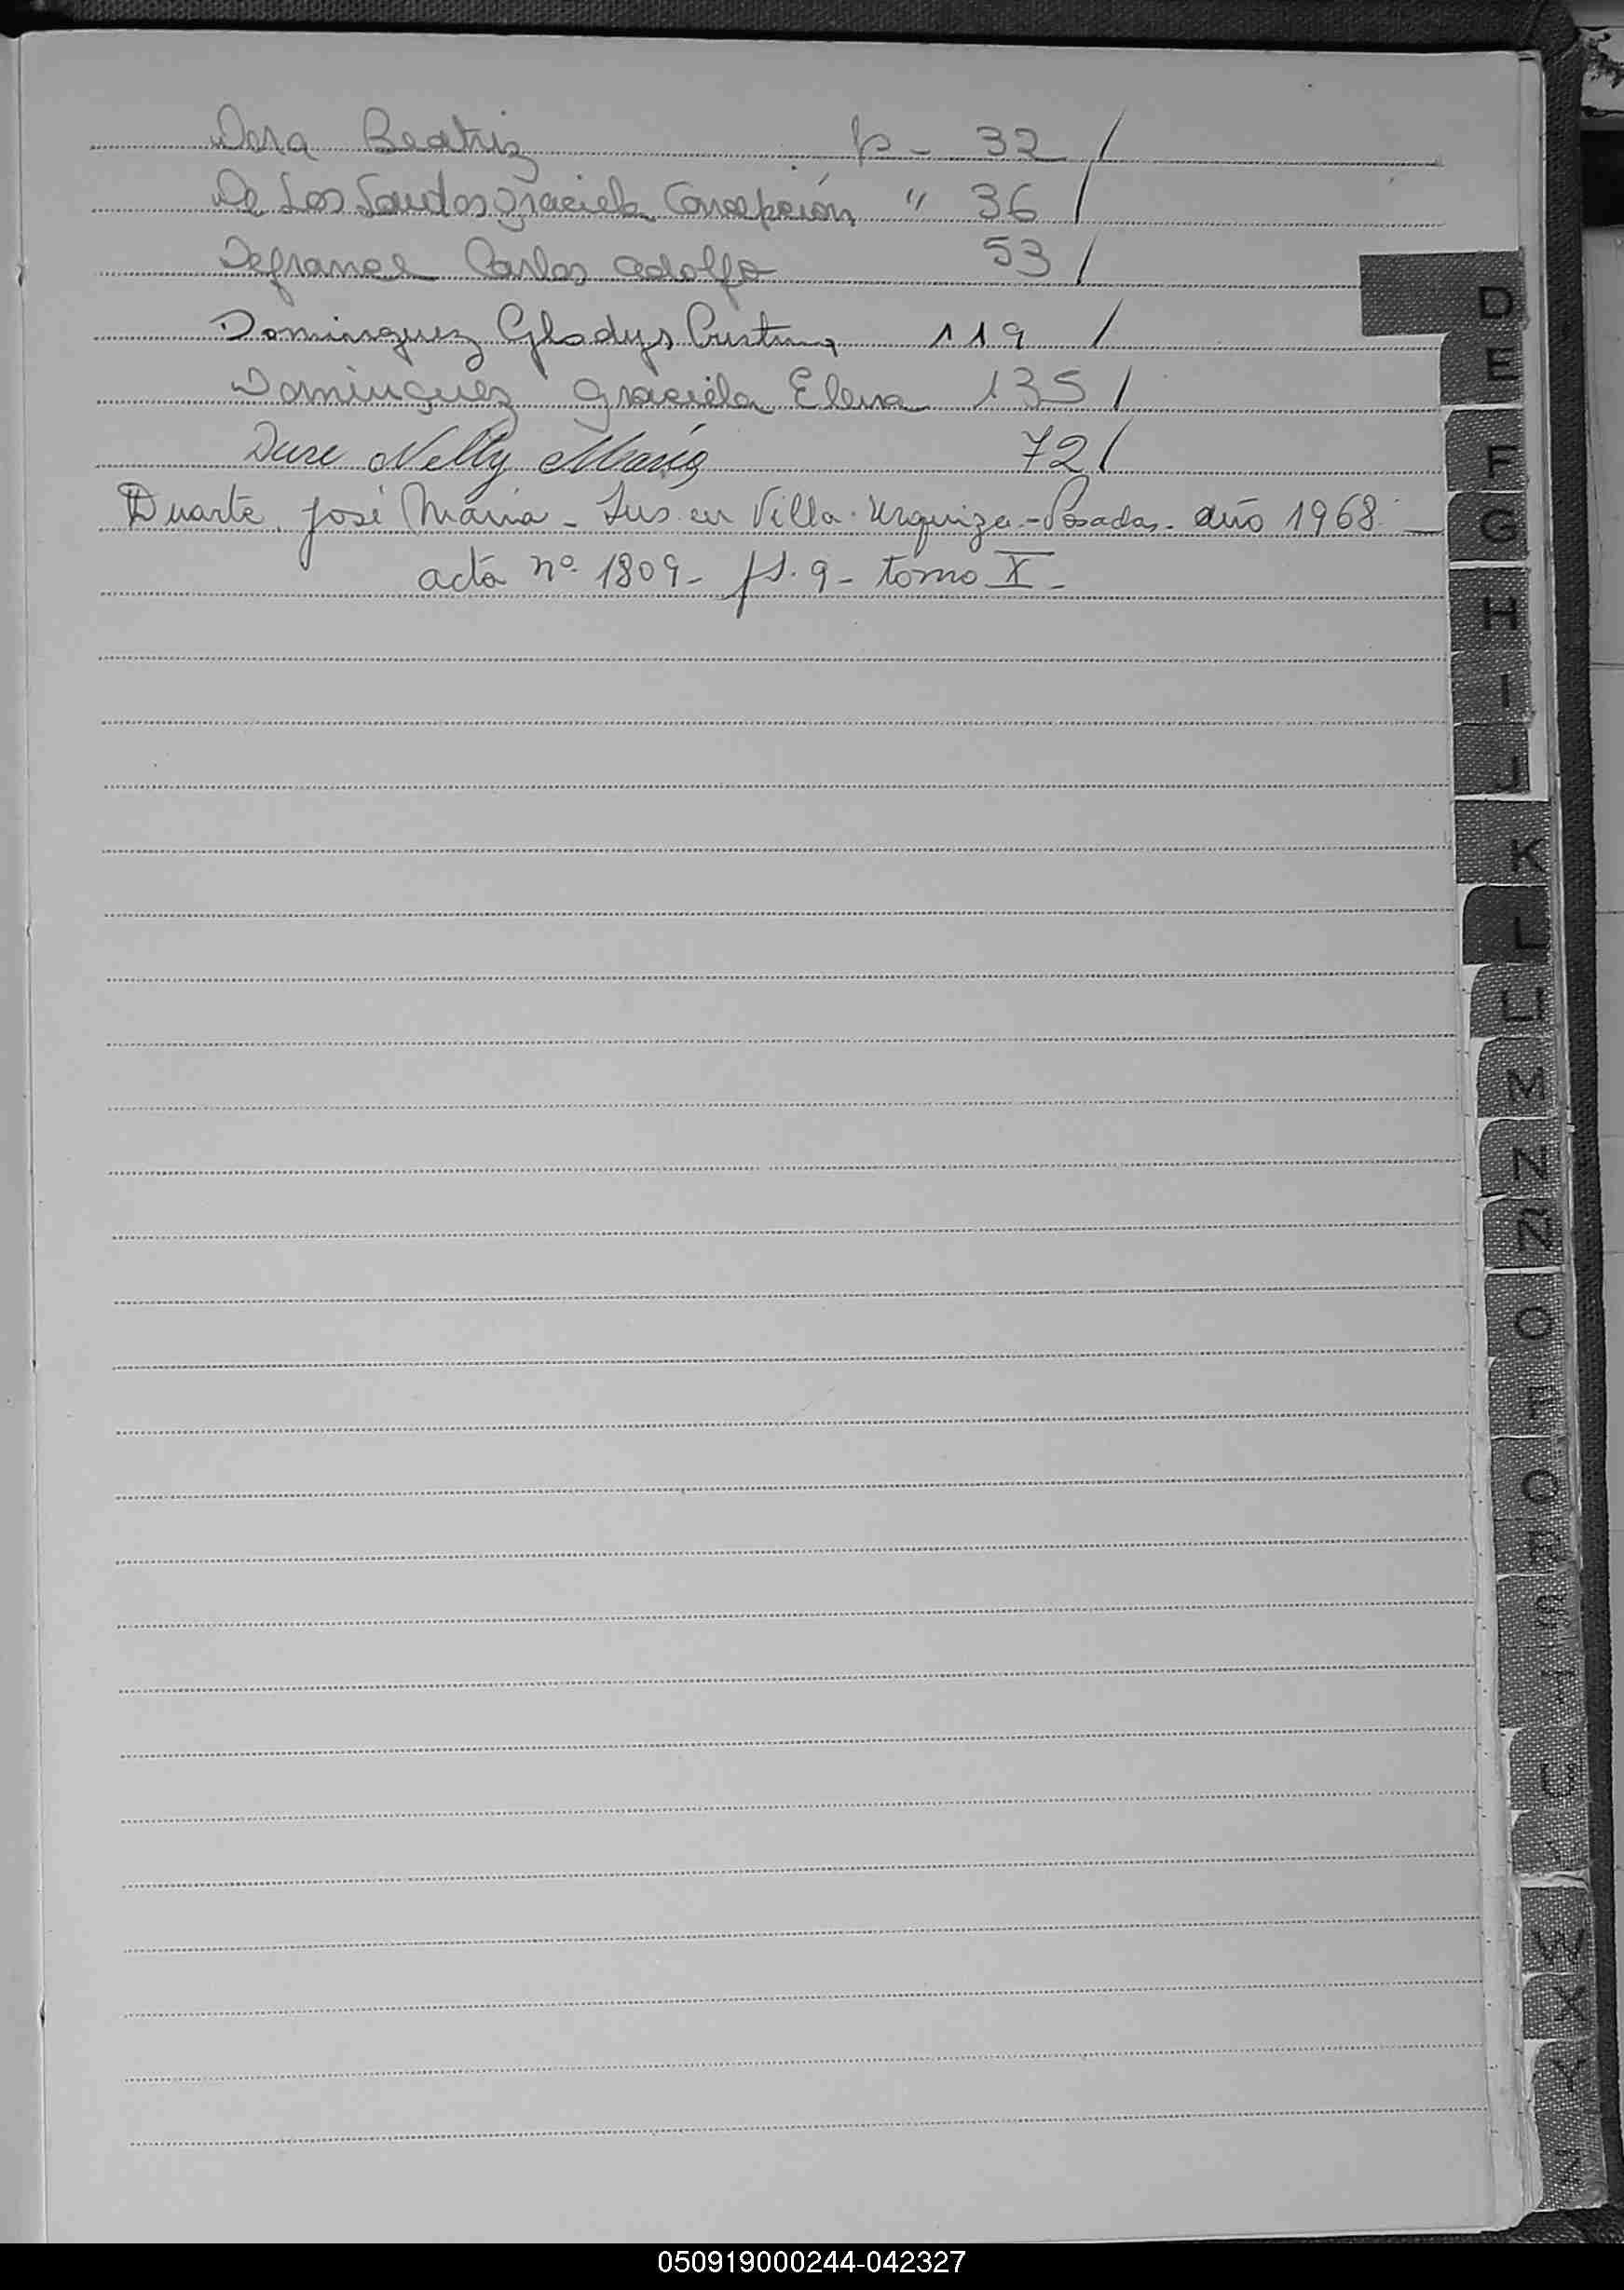 Dora Beatriz p - 32 /
De Los Santos Graciela Concepción " 36 /
Defrance Carlos Adolfo 53 /
Dominguez Gladys Cristina 119 /
Dominguez Graciela Elena 135 /
Dure Nelly María 72 /
Duarte José María - Ins. en Villa Urquiza - Posadas - año 1968 -
acta nº 1809 - fs. 9 - tomo X -
D
E
F
G
H
I
J
K
L
LL
M
N
Ñ
O
P
Q
R
S
T
U
V
W
X
Y
Z
050919000244-042327